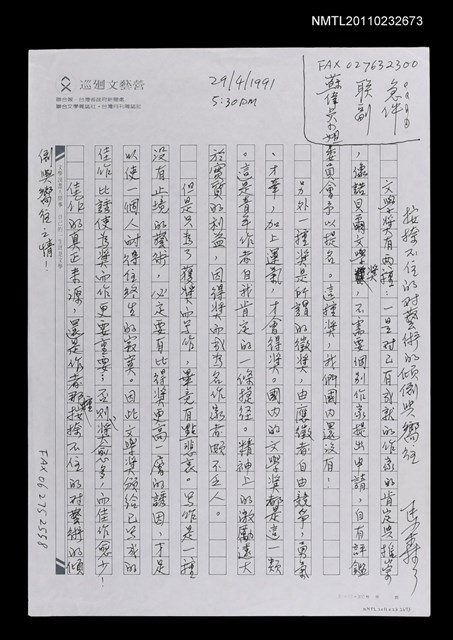 NMTL20110232673
巡廻文藝營
29/4/1991
5:30PM
FAX 027632300
急件
聯副
蘇偉貞小姐
按捺不住的對藝術的傾倒與嚮往
文學獎有兩種:一是對已有成就的作家的肯定與推崇
,像諾貝爾文學獎,不需要個別作家提出申請,自有評鑑
委員會予以提名。這種獎,我們國內還沒有!
另外一種獎是所謂的徵獎,由應徵者自由競爭,勇氣
、才華,加上運氣,才會得獎。國內的文學獎都是這一類
。這是青年作者自我肯定的一條捷徑。精神上的激勵遠大
於實質的利益,因得獎而成為名作家者頗不乏人。
但是只為了獲獎而寫作,畢竟有點悲哀。寫作是一種
沒有止境的藝術,必定要有比得獎更高一層的誘因,才足
以使一個人耐得住終生的寂寞。因此文學獎頒給已寫成的
佳作,比誘使為獎而作更要重要;否則獎愈多,而佳作愈少!
佳作的真正來源,還是作者那種按捺不住的對藝術的傾
倒與嚮往之情!
FAX 01 275 2558
NMTL20110232673